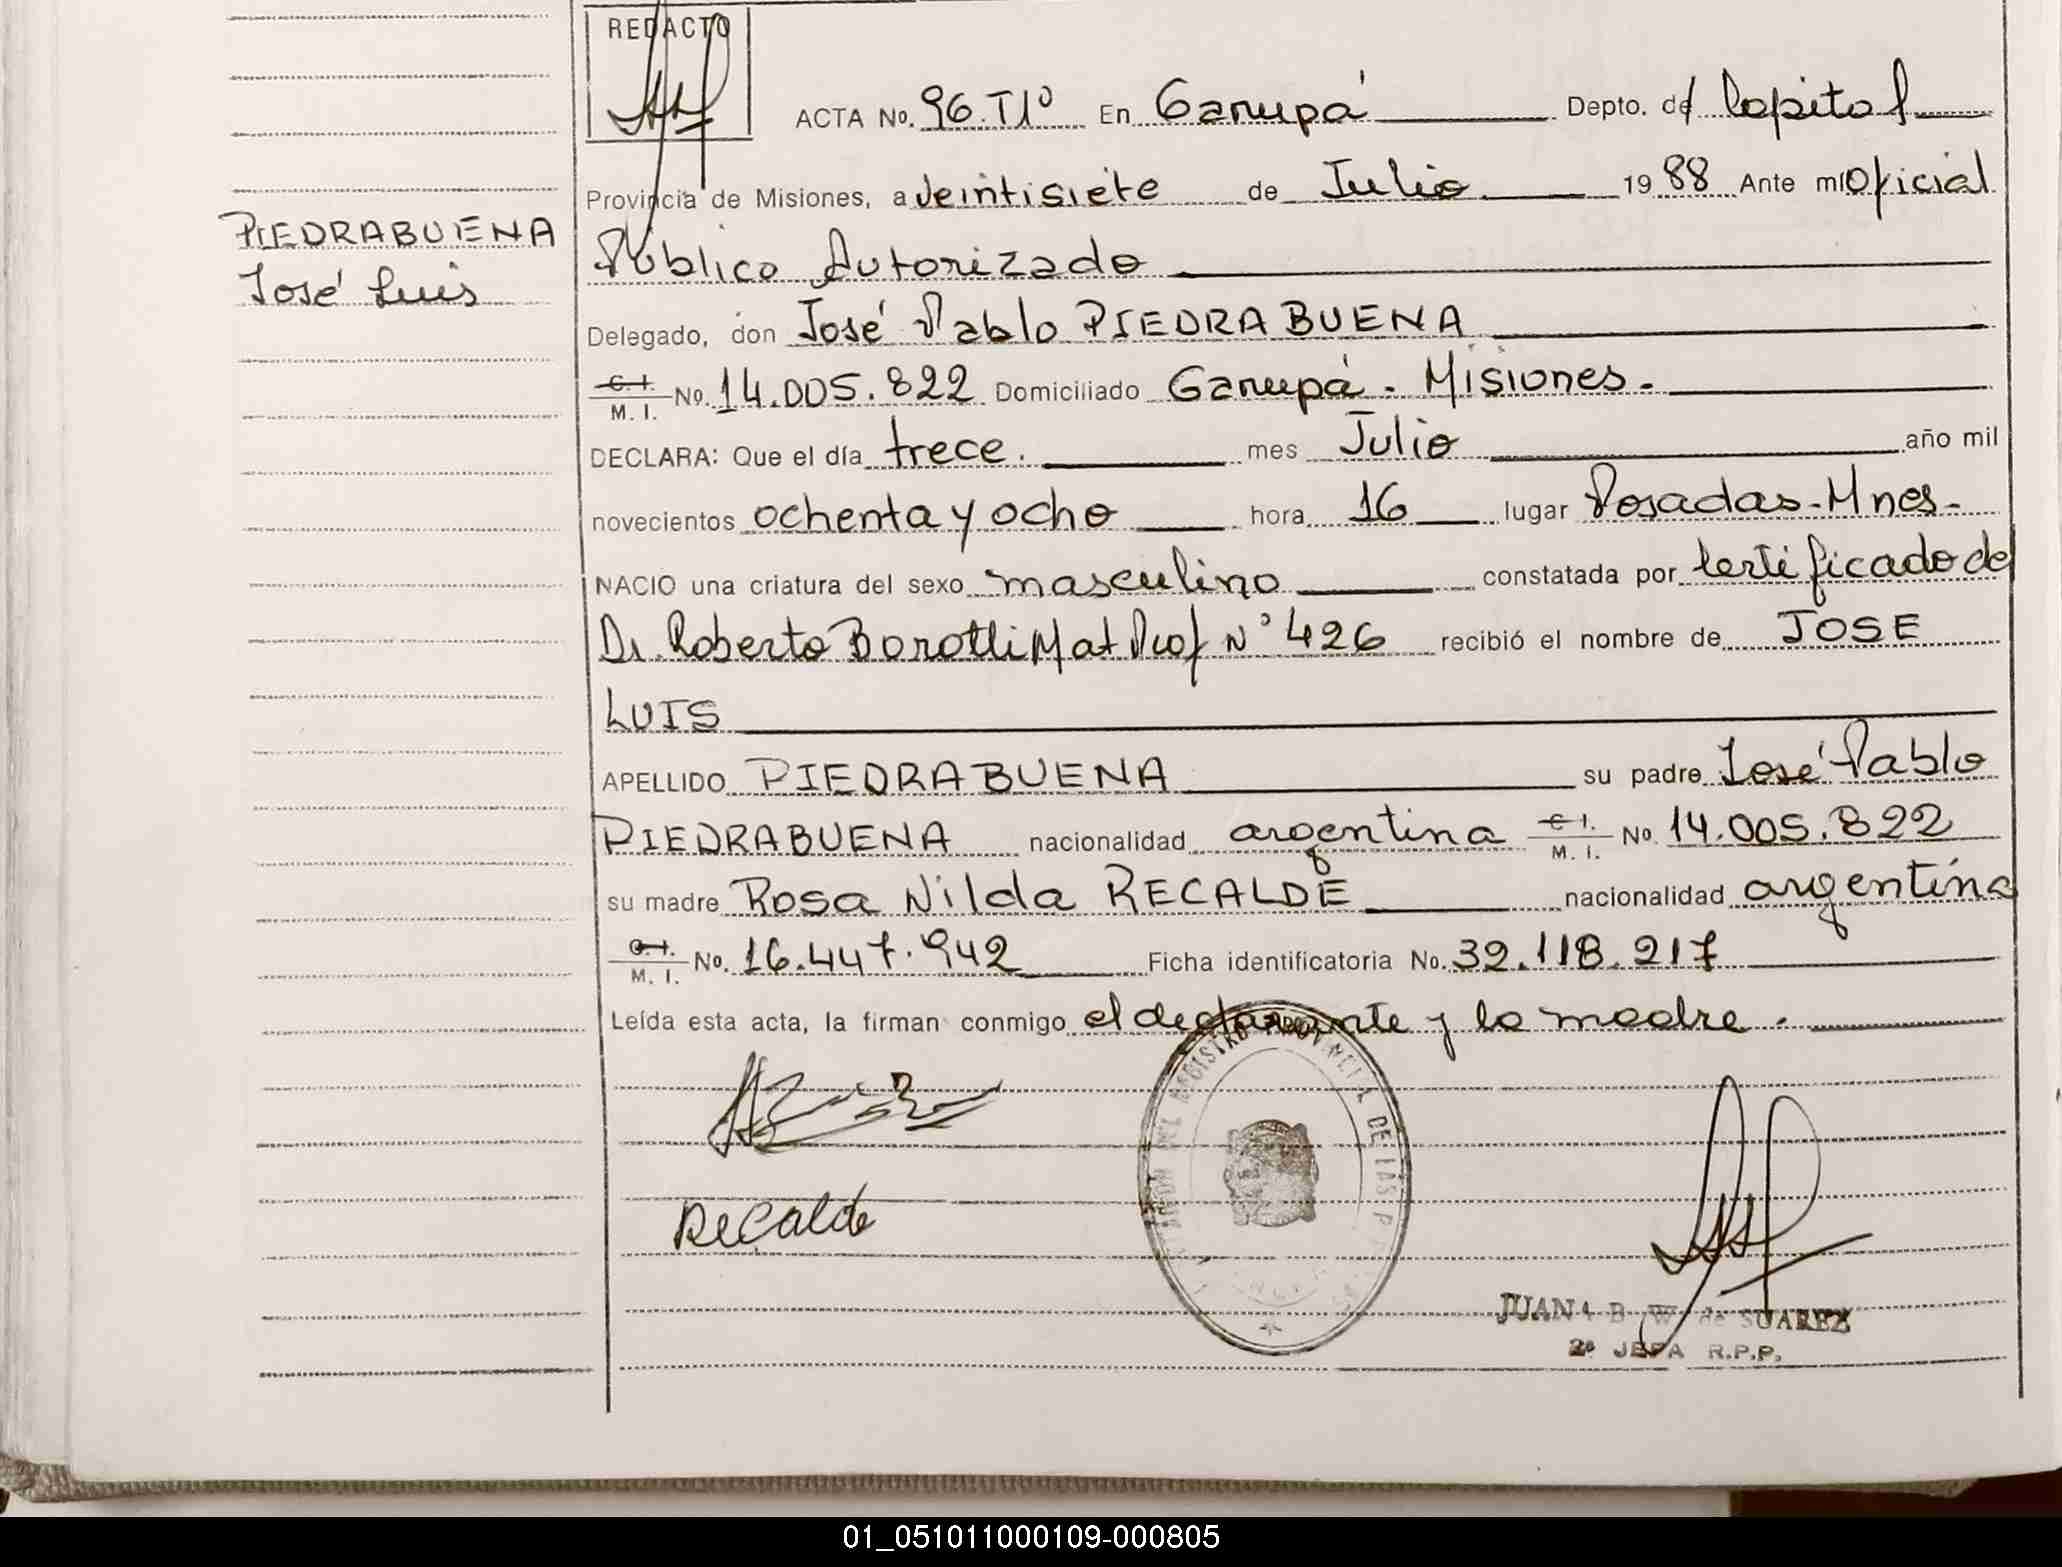 REDACTO
ACTA No. 96.T1º En Garupá Depto. de Capital
Provincia de Misiones, a veintisiete de Julio 1988 Ante mi Oficial
PIEDRABUENA
Público Autorizado
José Luis
Delegado, don José Pablo PIEDRABUENA
C.I. M. I. No. 14.005.822 Domiciliado Garupá - Misiones.
DECLARA: Que el día trece. mes Julio año mil
novecientos ochenta y ocho hora 16 lugar Posadas-Mnes-
NACIO una criatura del sexo masculino constatada por Certificado del
Dr. Roberto Borotti Mat Prof Nº 426 recibió el nombre de JOSE
LUIS
APELLIDO PIEDRABUENA su padre José Pablo
PIEDRABUENA nacionalidad argentina C.I. M. I. No. 14.005.822
su madre Rosa Nilda RECALDE nacionalidad argentina
C.I. M. I. No. 16.447.942 Ficha identificatoria No. 32.118.217
Leída esta acta, la firman conmigo el declarante y la madre.
REGISTRO PROVINCIAL DE LAS P
Recalde
JUANA B W de SUAREZ
2ª JEFA R.P.P.
01_051011000109-000805